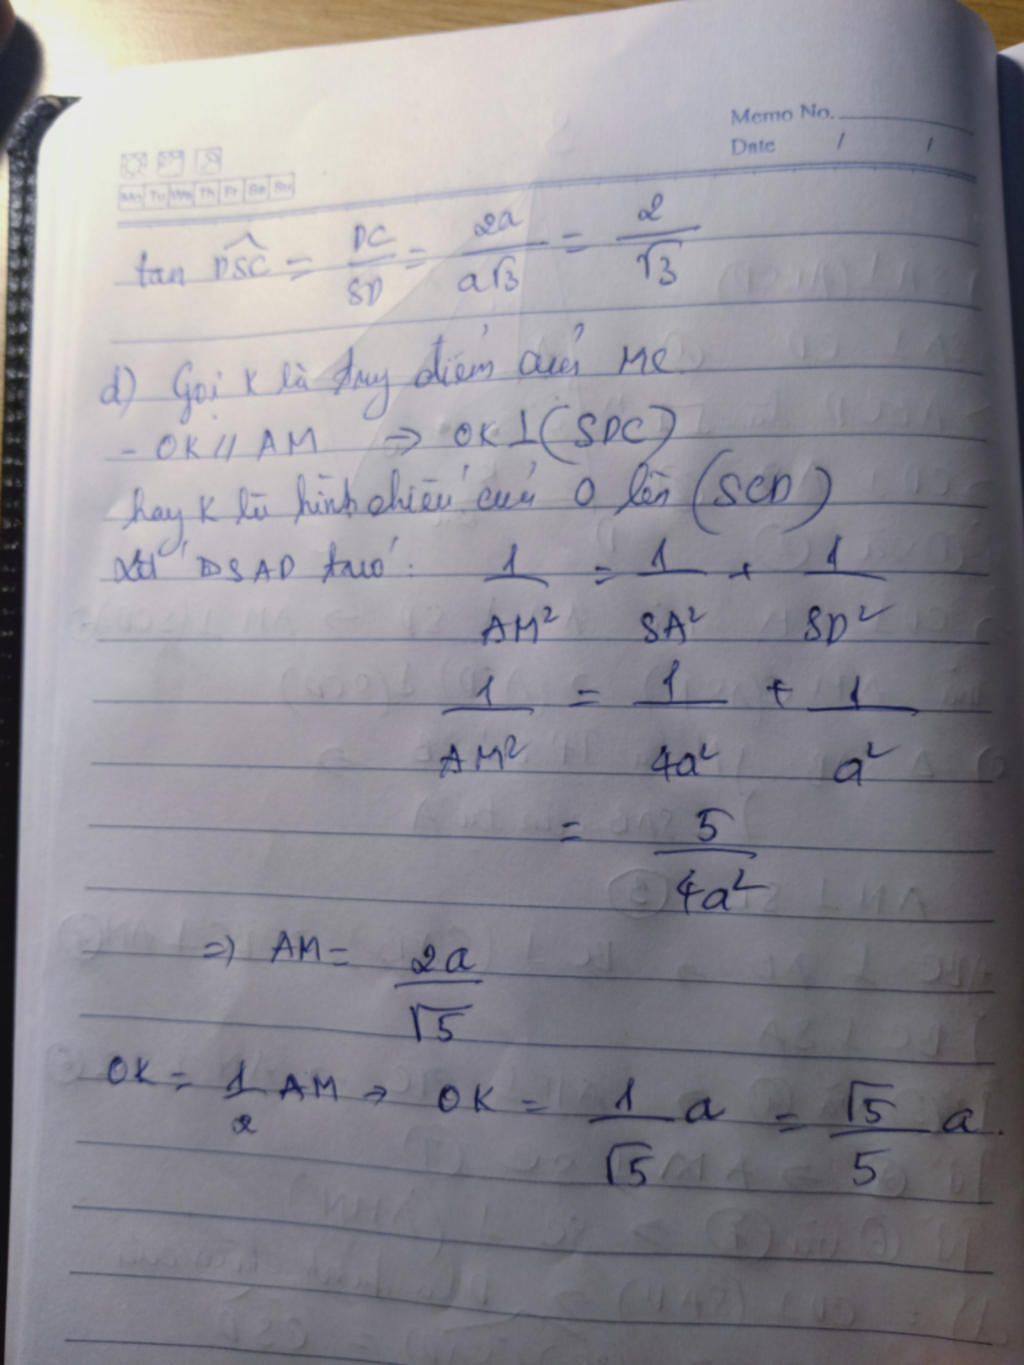 Memo No.
Date / /
Mo Tu We Th Fr Sa Su
tan DSC = DC/SD = 2a/a√3 = 2/√3
d) Gọi K là trung điểm của MC
- OK // AM ⇒ OK ⊥ (SDC)
hay K là hình chiếu của O lên (SCD)
SAD 1/AM² = 1/SA² + 1/SD²
1/AM² = 1/4a² + 1/a²
= 5/4a²
⇒ AM = 2a/√5
OK = 1/2 AM → OK = 1/√5 a = √5/5 a.